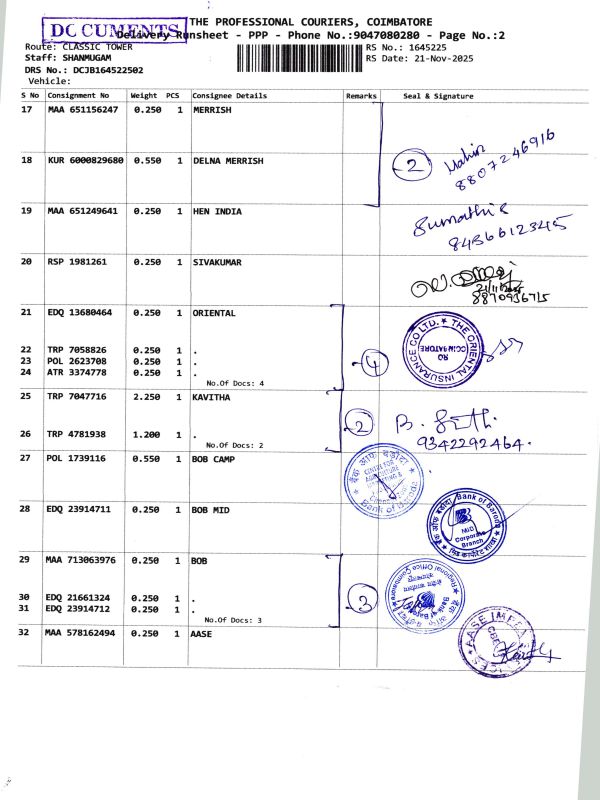 DOCUMENTS
THE PROFESSIONAL COURIERS, COIMBATORE
Delivery Runsheet - PPP - Phone No.:9047080280 - Page No.:2
Route: CLASSIC TOWER
RS No.: 1645225
Staff: SHANMUGAM
RS Date: 21-Nov-2025
DRS No.: DCJB164522502
Vehicle:
S No Consignment No Weight PCS Consignee Details Remarks Seal & Signature
17 MAA 651156247 0.250 1 MERRISH
18 KUR 6000829680 0.550 1 DELNA MERRISH
2 Mahin
8807246916
19 MAA 651249641 0.250 1 HEN INDIA
Sumathi S
8436612345
20 RSP 1981261 0.250 1 SIVAKUMAR
21/11/2025
8870936715
21 EDQ 13680464 0.250 1 ORIENTAL
THE ORIENTAL INSURANCE CO LTD.
RO
COIMBATORE
22 TRP 7058826 0.250 1 .
23 POL 2623708 0.250 1 .
24 ATR 3374778 0.250 1 .
4
No.Of Docs: 4
25 TRP 7047716 2.250 1 KAVITHA
2 B.
9342292464.
26 TRP 4781938 1.200 1 .
No.Of Docs: 2
27 POL 1739116 0.550 1 BOB CAMP
बैंक ऑफ बड़ौदा
CENTRE FOR
AGRICULTURE
Bank of Baroda
28 EDQ 23914711 0.250 1 BOB MID
Bank of Baroda
Mid
Corporate
Branch
29 MAA 713063976 0.250 1 BOB
Regional Office Coimbatore
Bank of Baroda
30 EDQ 21661324 0.250 1 .
31 EDQ 23914712 0.250 1 .
3
No.Of Docs: 3
32 MAA 578162494 0.250 1 AASE
AASE